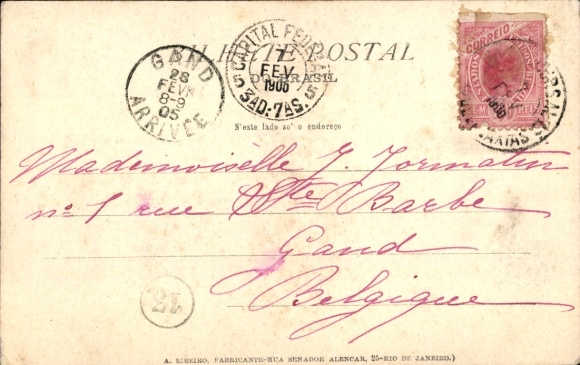 BILHETE POSTAL
DO BRASIL
GAND
28
FEVR
8-9
05
ARRIVÉE
CAPITAL FEDERAL
7
FEV
1905
3AD.7AS.
CORREIO
N'este lado so' o endereço
Mademoiselle J. Formatin
nº 1 rue Ste Barbe
Gand
Belgique
21
A. RIBEIRO, FABRICANTE-RUA SENADOR ALENCAR, 25-RIO DE JANEIRO.)